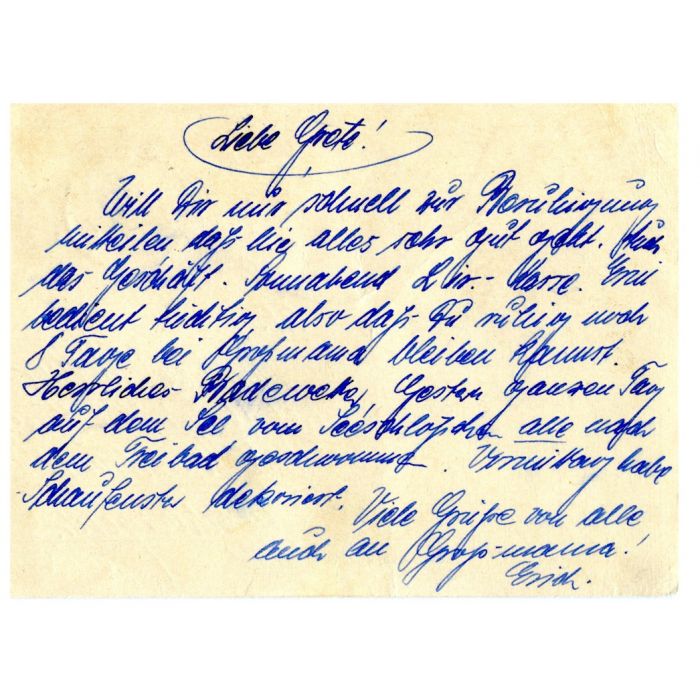 Liebe Grete!
Will Dir nur schnell zur Beruhigung
mitteilen daß hie alles sehr gut geht. Auch
das Geschäft. Sonnabend Kasse.
bedient tüchtig also daß Du ruhig noch
8 Tage bei Großmama bleiben kannst.
Herrliches Badewetter, Gestern ganzen Tag
auf dem See vom Seeschlößchen alle nach
dem Freibad geschwommen. Vormittag habe
Schaufenster dekoriert.
Viele Grüße von alle
auch an Groß-mama!
Erich.